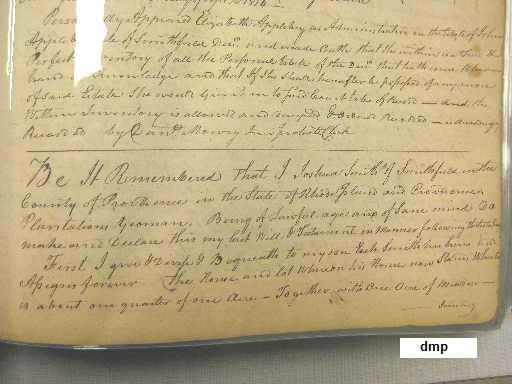 Personally Appeared Elizabeth Appleby as Administratrix on the Estate of Johna
Appleby late of Smithfield Decd. and made Oath that the within is a true &
Perfect Inventory of all the Personal Estate of the Decd. that hath come to her
hand or knowledge and that If She Should hereafter be possessed of any more
of said Estate She would give in to said Court to be of Record — and the
Within Inventory is allowed and
Recorded by Mowry Junr probate Clerk
Be It Remembered that I Joshua Smith of Smithfield in the
County of Providence in the State of Rhode Island and Providence
Plantations Yeoman. Being of Lawful age and of Sane mind Do
make and Declare this my last Will & Testament in Manner following
First I give & Devise & Bequeath to my son Smith his heirs and
Assigns forever The House and lot Whereon his House now Stands Which
is about one quarter of one Acre — Together with One Acre of Meadow —
dmp